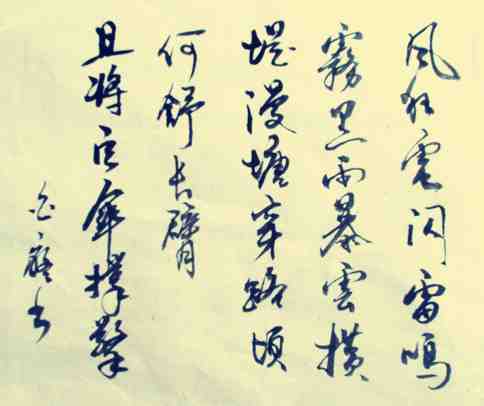 風狂電閃雷鳴
霧黑雨暴雲橫
堤漫塘穿路傾
何舒長臂
且將巨傘撐擎
書